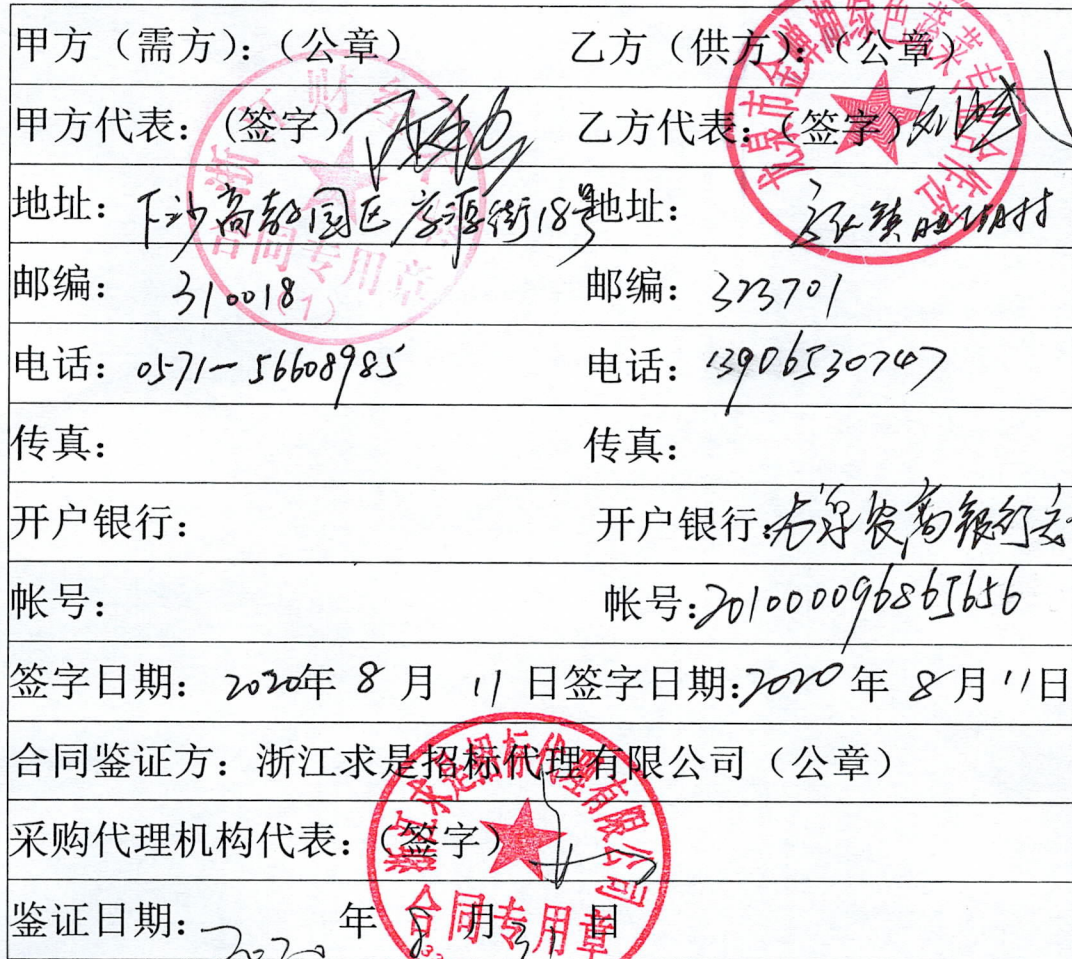 甲方（需方）：（公章） 乙方（供方）：（公章）
甲方代表：（签字） 乙方代表：（签字）
地址：下沙高教园区学源街18号 地址：
邮编：310018 邮编：323701
电话：0571-56608985 电话：13906530747
传真： 传真：
开户银行： 开户银行：龙泉农商银行
帐号： 帐号：201000096865656
签字日期：2020年8月11日 签字日期：2020年8月11日
合同鉴证方：浙江求是招标代理有限公司（公章）
采购代理机构代表：（签字）
鉴证日期：2020年8月31日
浙江财经大学
合同专用章
(1)
浙江求是招标代理有限公司
合同专用章